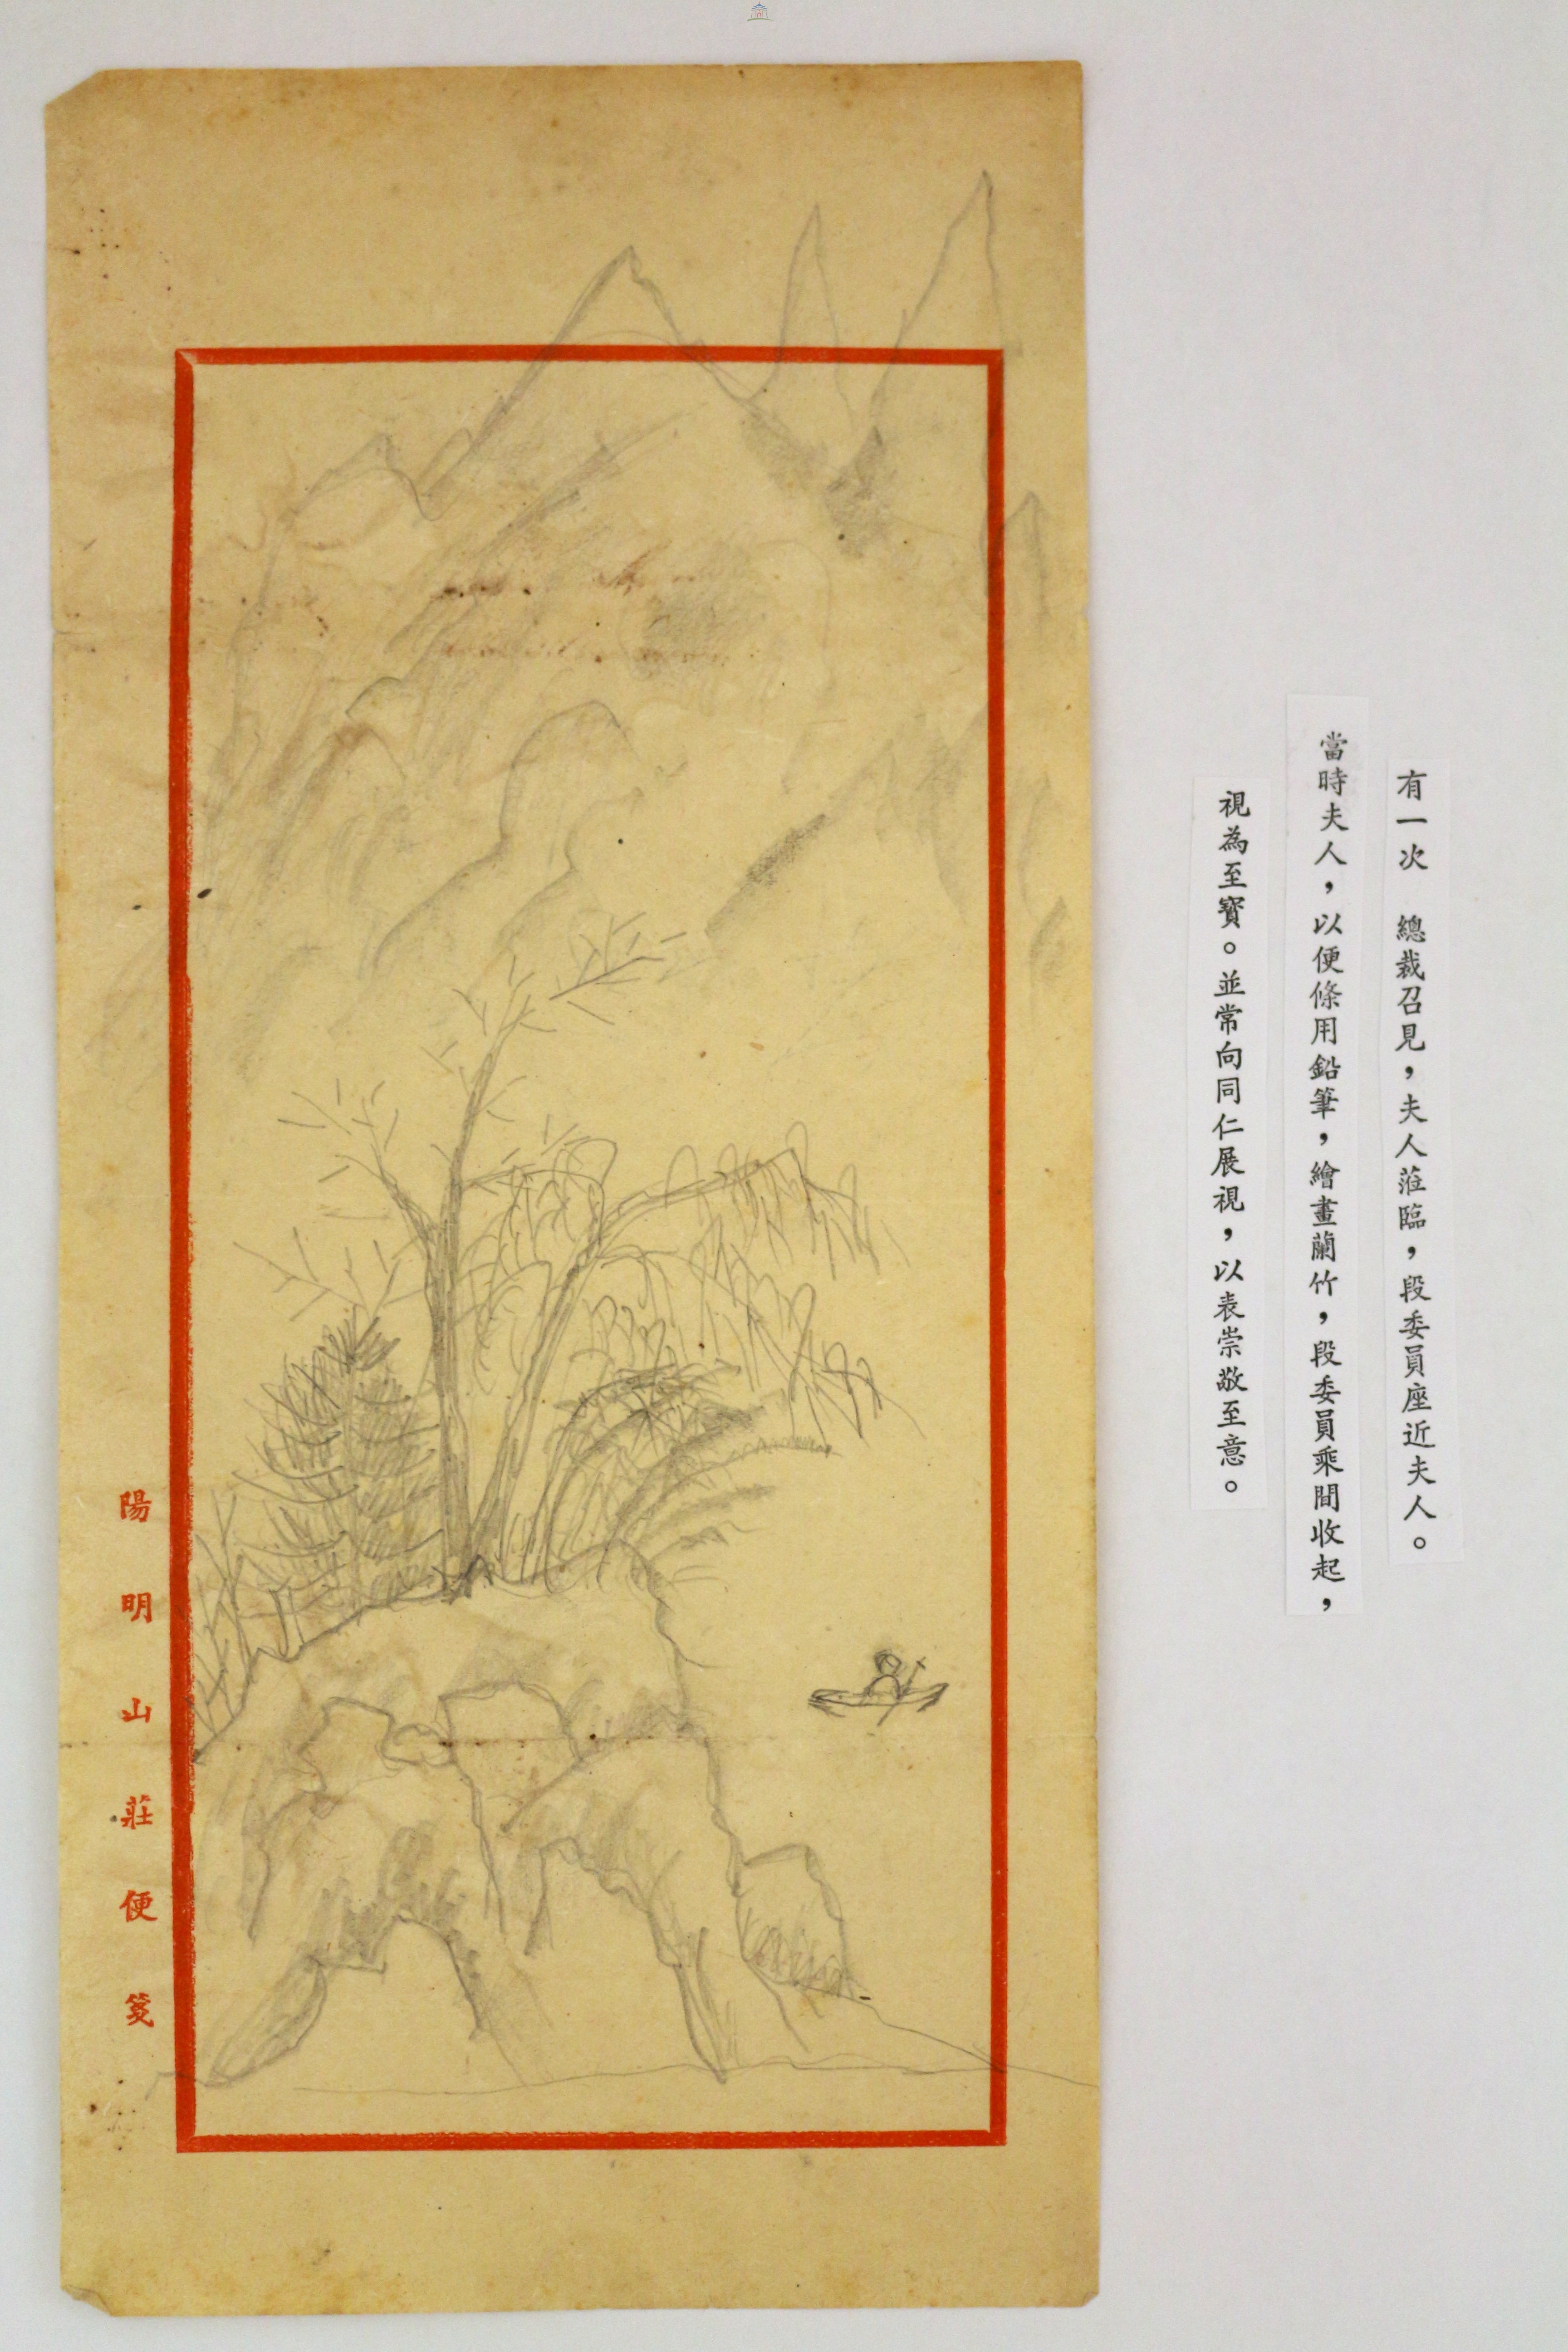 有一次　總裁召見，夫人蒞臨，段委員座近夫人。
當時夫人，以便條用鉛筆，繪畫蘭竹，段委員乘間收起，
視為至寶。並常向同仁展視，以表崇敬至意。
陽明山莊便箋